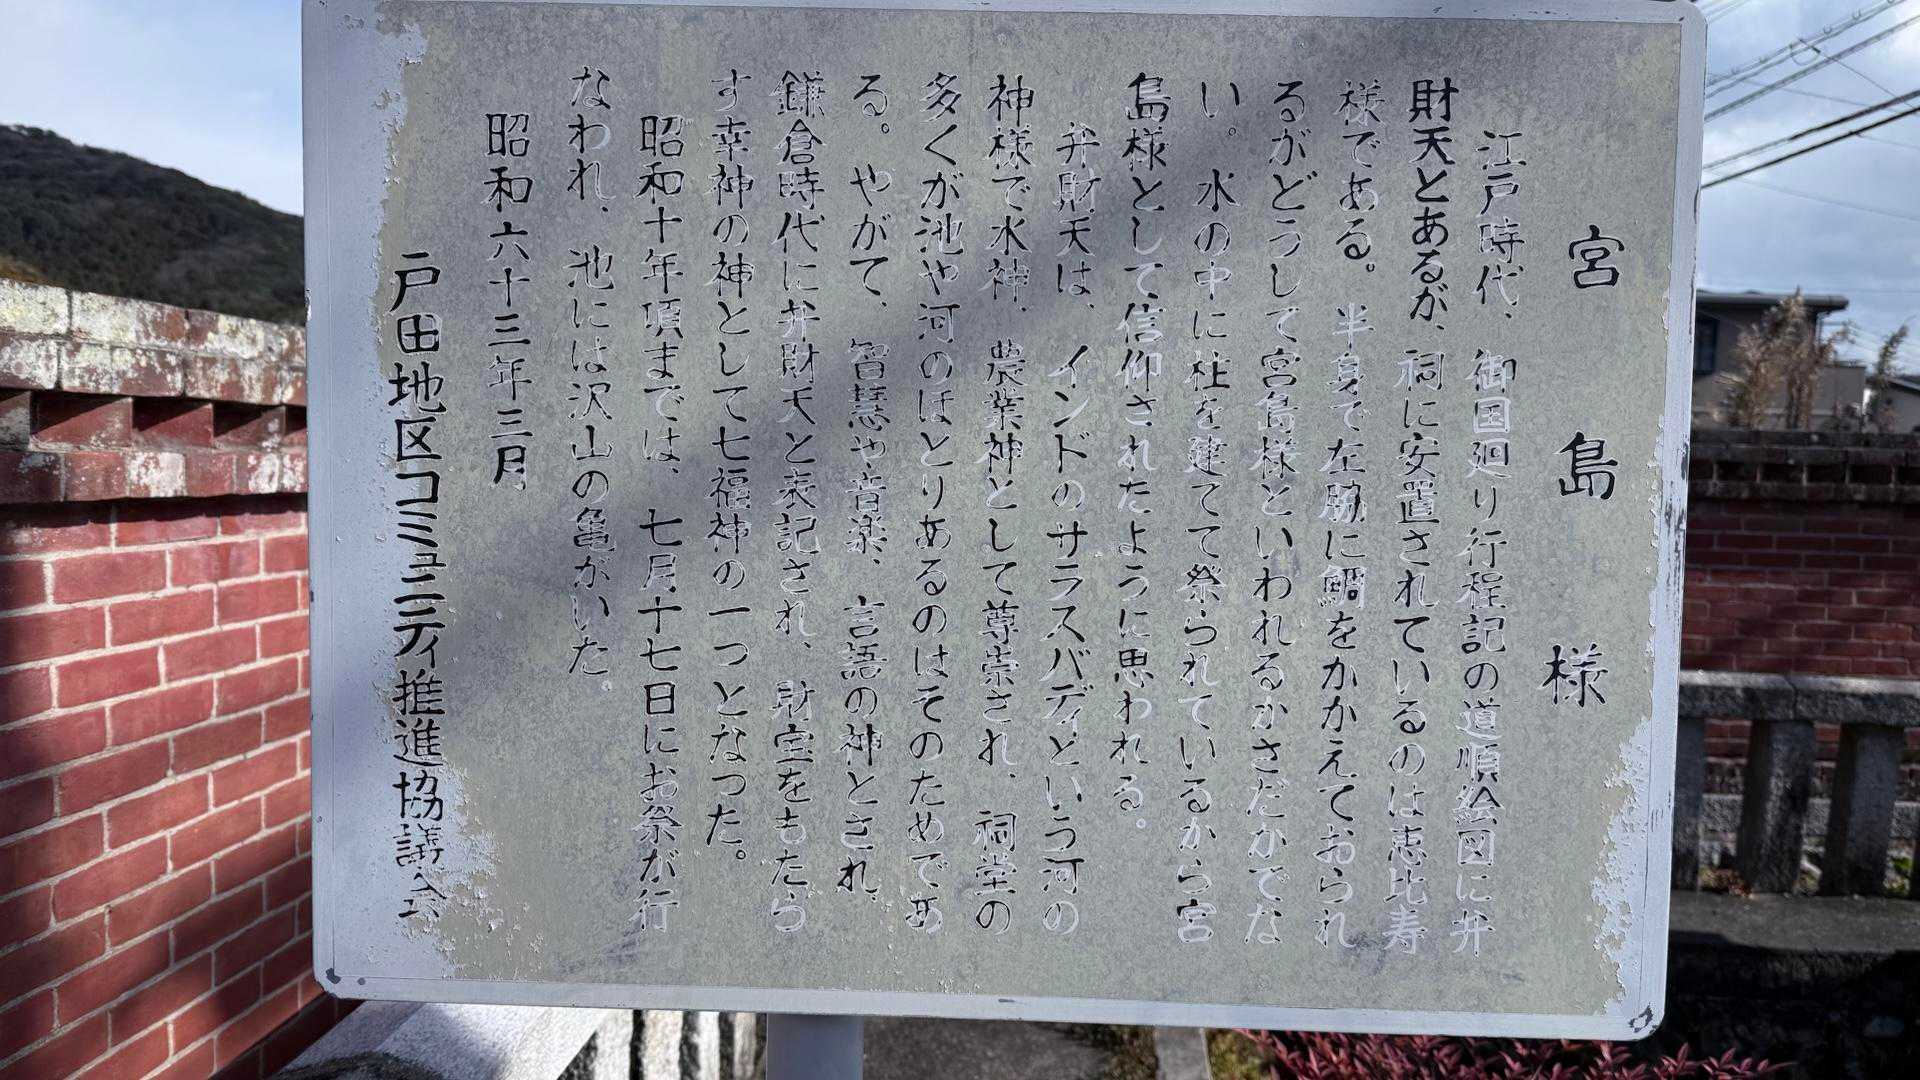 宮島様
江戸時代、御国廻り行程記の道順絵図に弁
財天とあるが、祠に安置されているのは恵比寿
様である。半身で左脇に鯛をかかえておられ
るがどうして宮島様といわれるかさだかでな
い。水の中に柱を建てて祭られているから宮
島様として信仰されたように思われる。
弁財天は、インドのサラスバディという河の
神様で水神、農業神として尊崇され、祠堂の
多くが池や河のほとりあるのはそのためであ
る。やがて、智慧や音楽、言語の神とされ、
鎌倉時代に弁財天と表記され、財宝をもたら
す幸神の神として七福神の一つとなった。
昭和十年項までは、七月十七日にお祭が行
なわれ、池には沢山の亀がいた。
昭和六十三年三月
戸田地区コミュニティ推進協議会